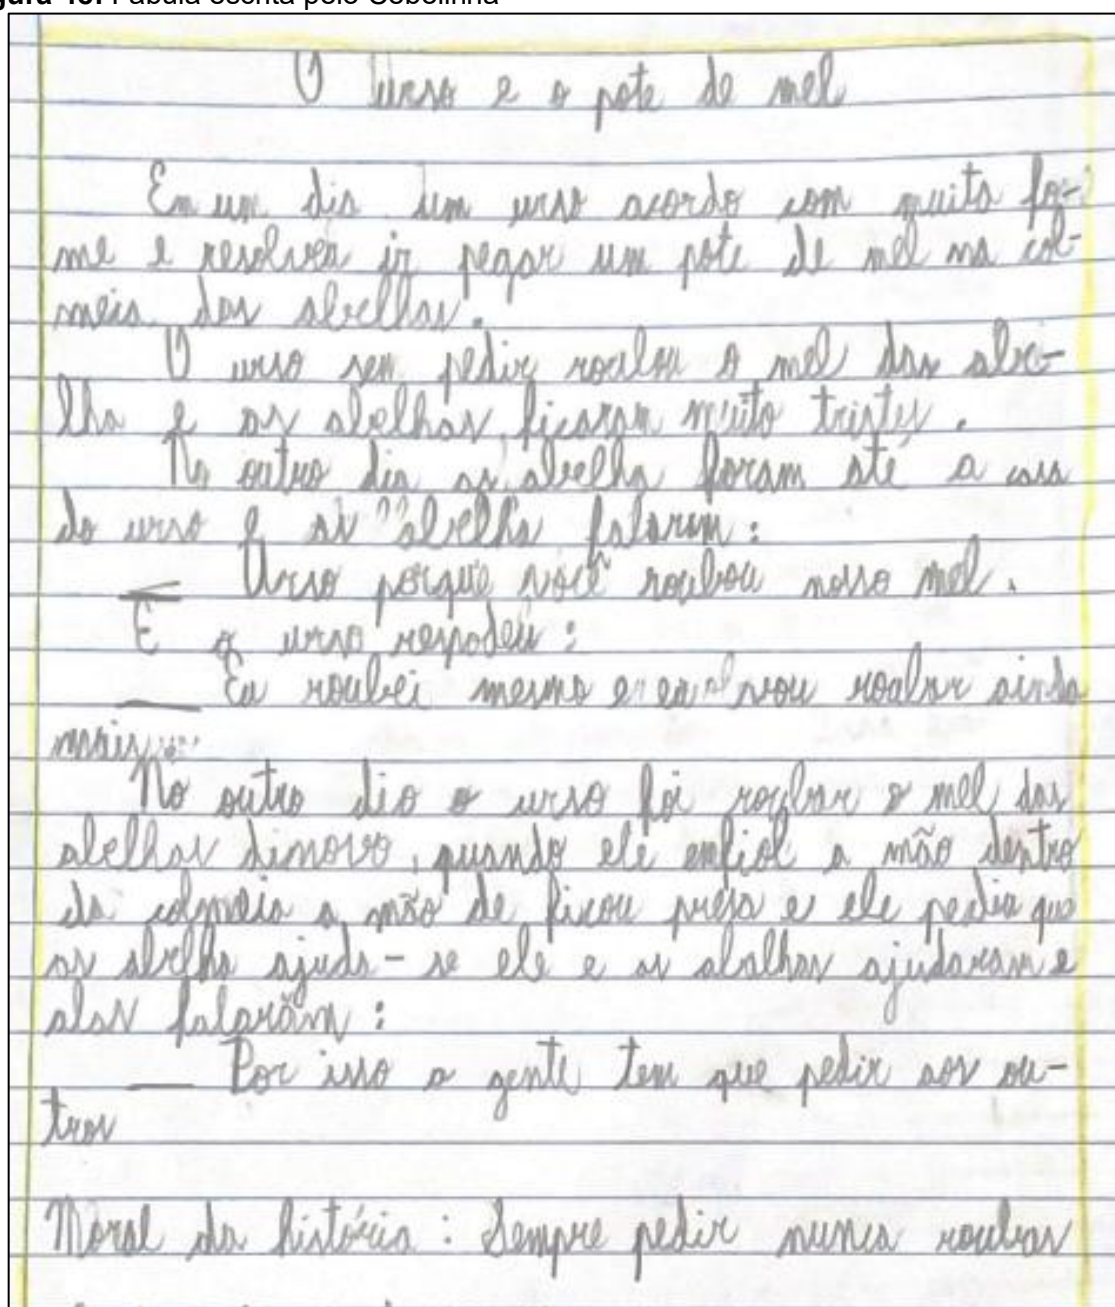 gura 40. Fábula escrita pelo Cebolinha
O urso e o pote de mel
Em um dia um urso acordo com muita fo-
me e resolveu ir pegar um pote de mel na col-
meia das abelhas.
O urso sem pedir roubou o mel das abe-
lha e as abelhas ficaram muito tristes.
No outro dia as abelha foram até a casa
do urso e as abelha falaram:
— Urso porque você roubou nosso mel.
E o urso respodeu:
— Eu roubei mesmo e eu vou roubar ainda
mais
No outro dia o urso foi roubar o mel das
abelhas dimovo, quando ele enfiol a mão dentro
da colmeia a mão de ficou presa e ele pedia que
as abelha ajuda-se ele e as abalhas ajudaram e
elas falarãm:
— Por isso a gente tem que pedir aos ou-
tros
Moral da história: Sempre pedir nunca roubar